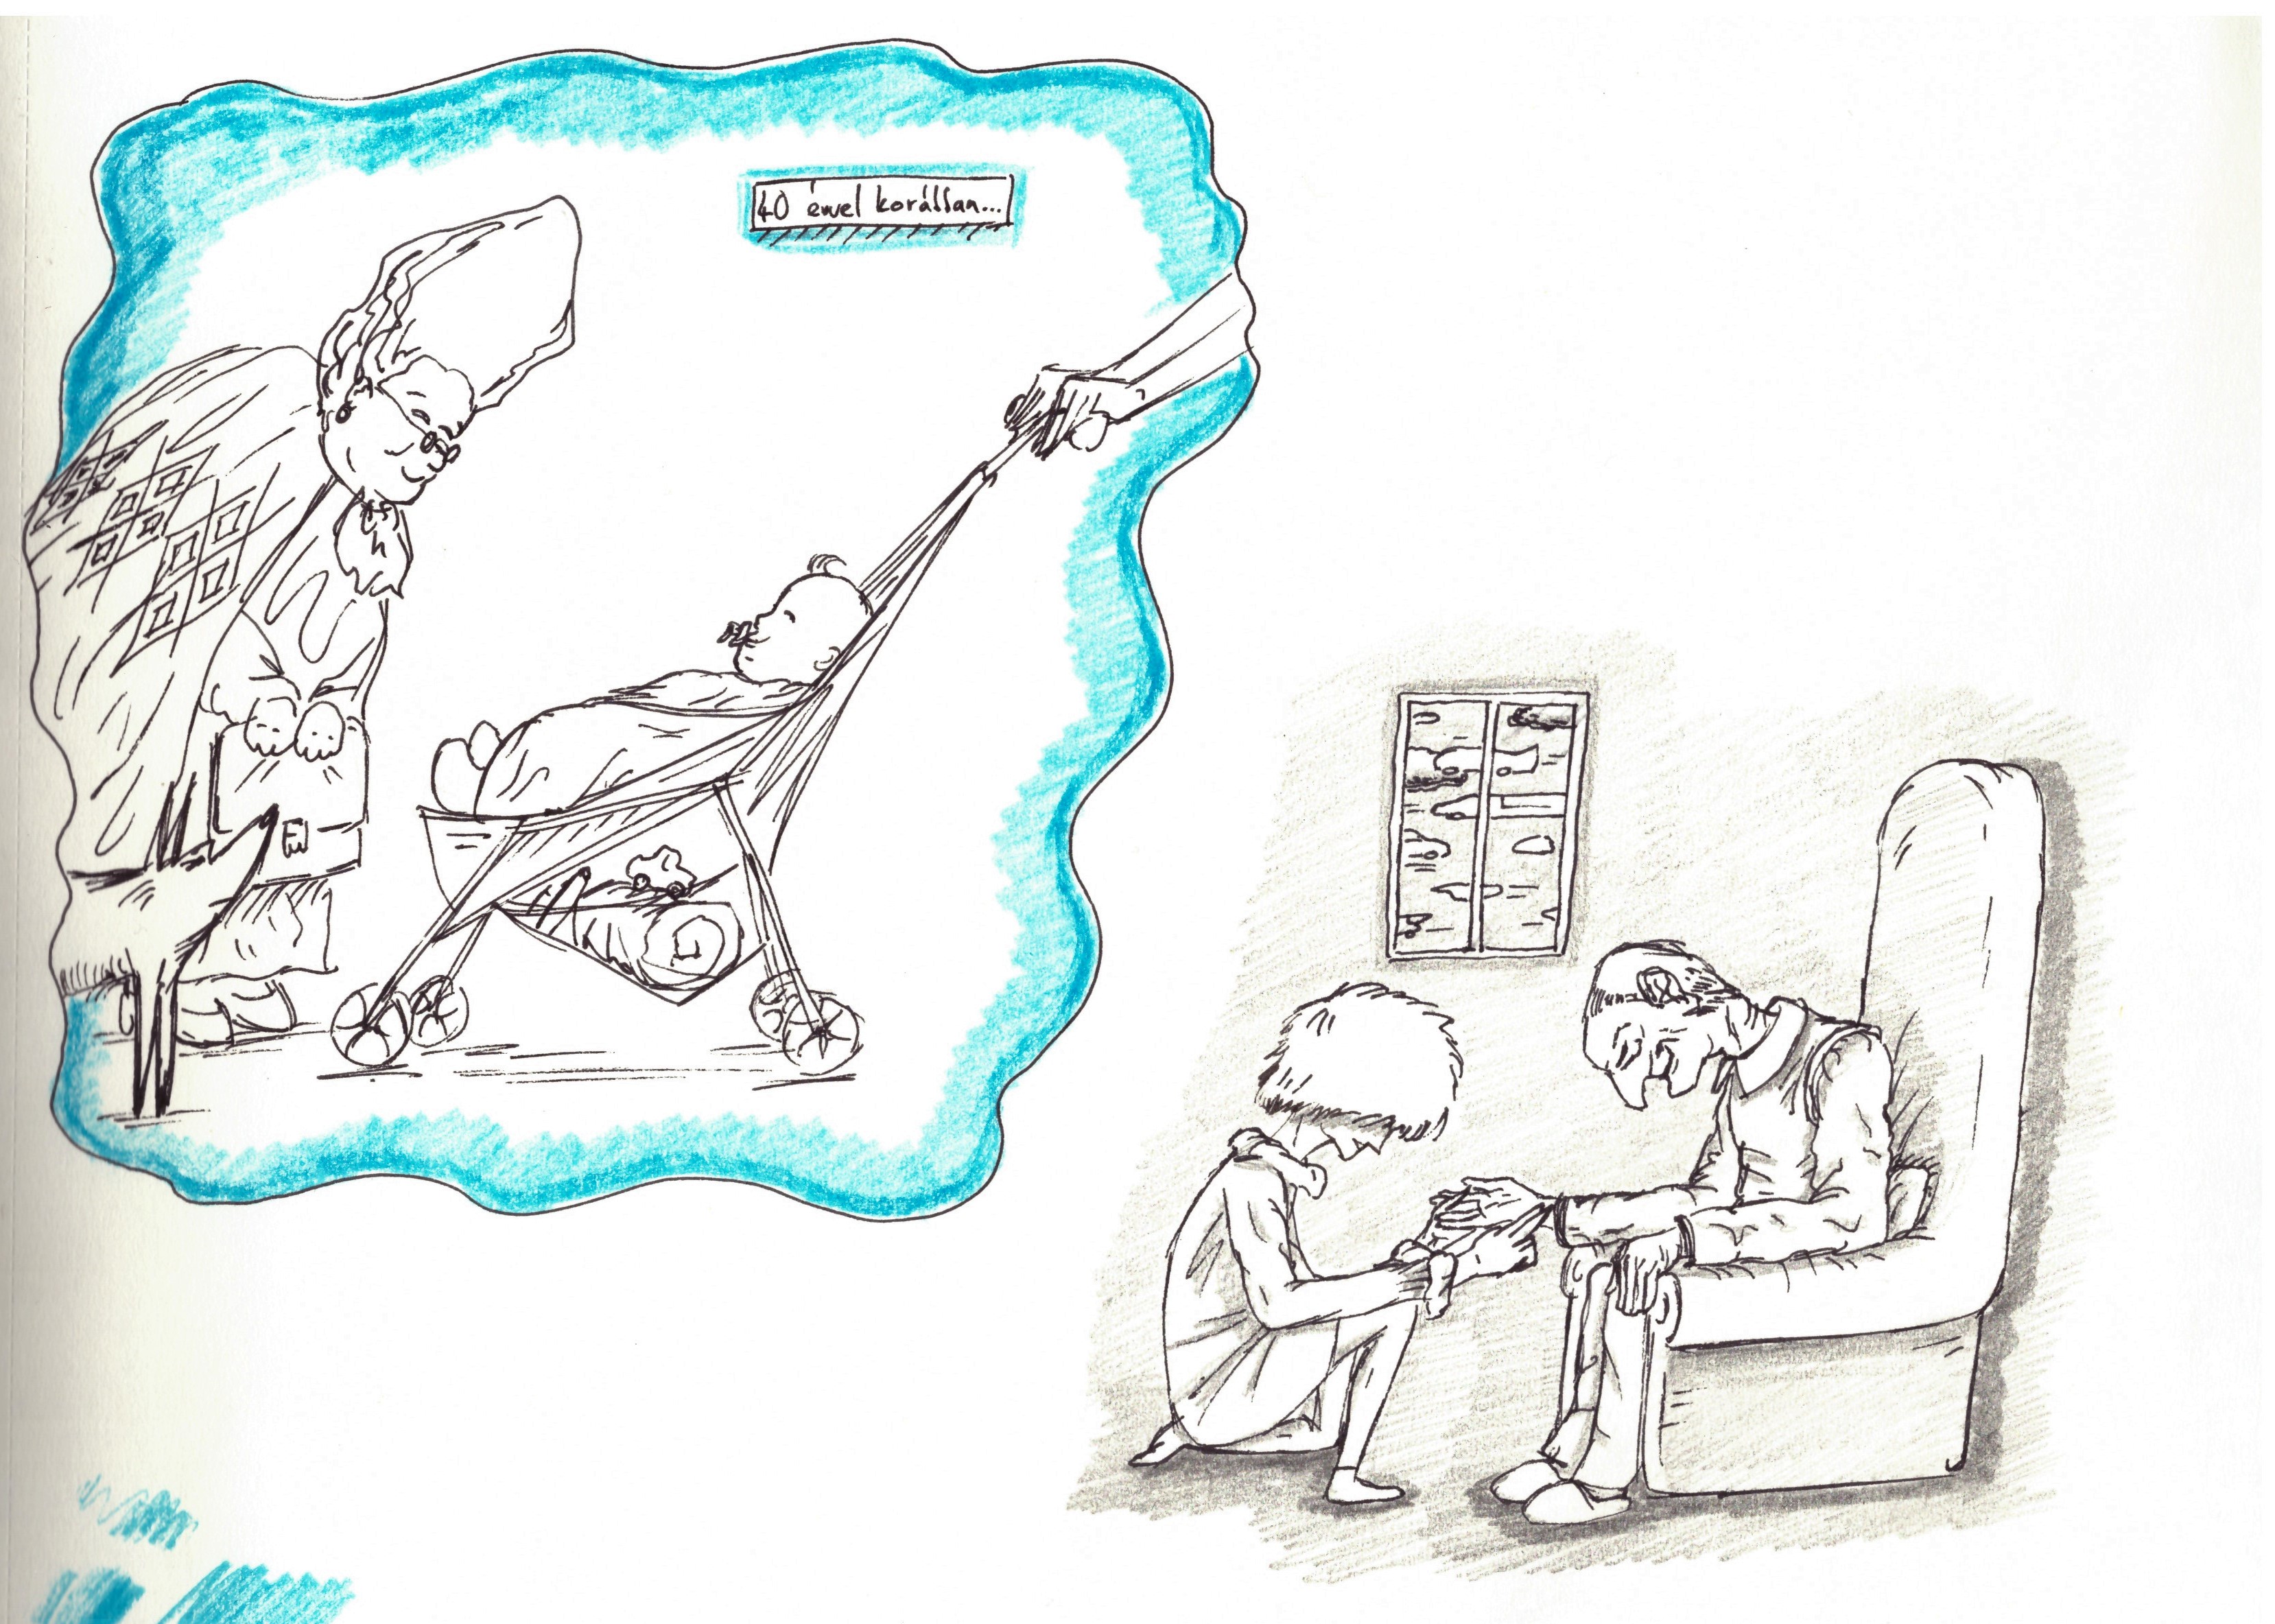 40 évvel korábban...